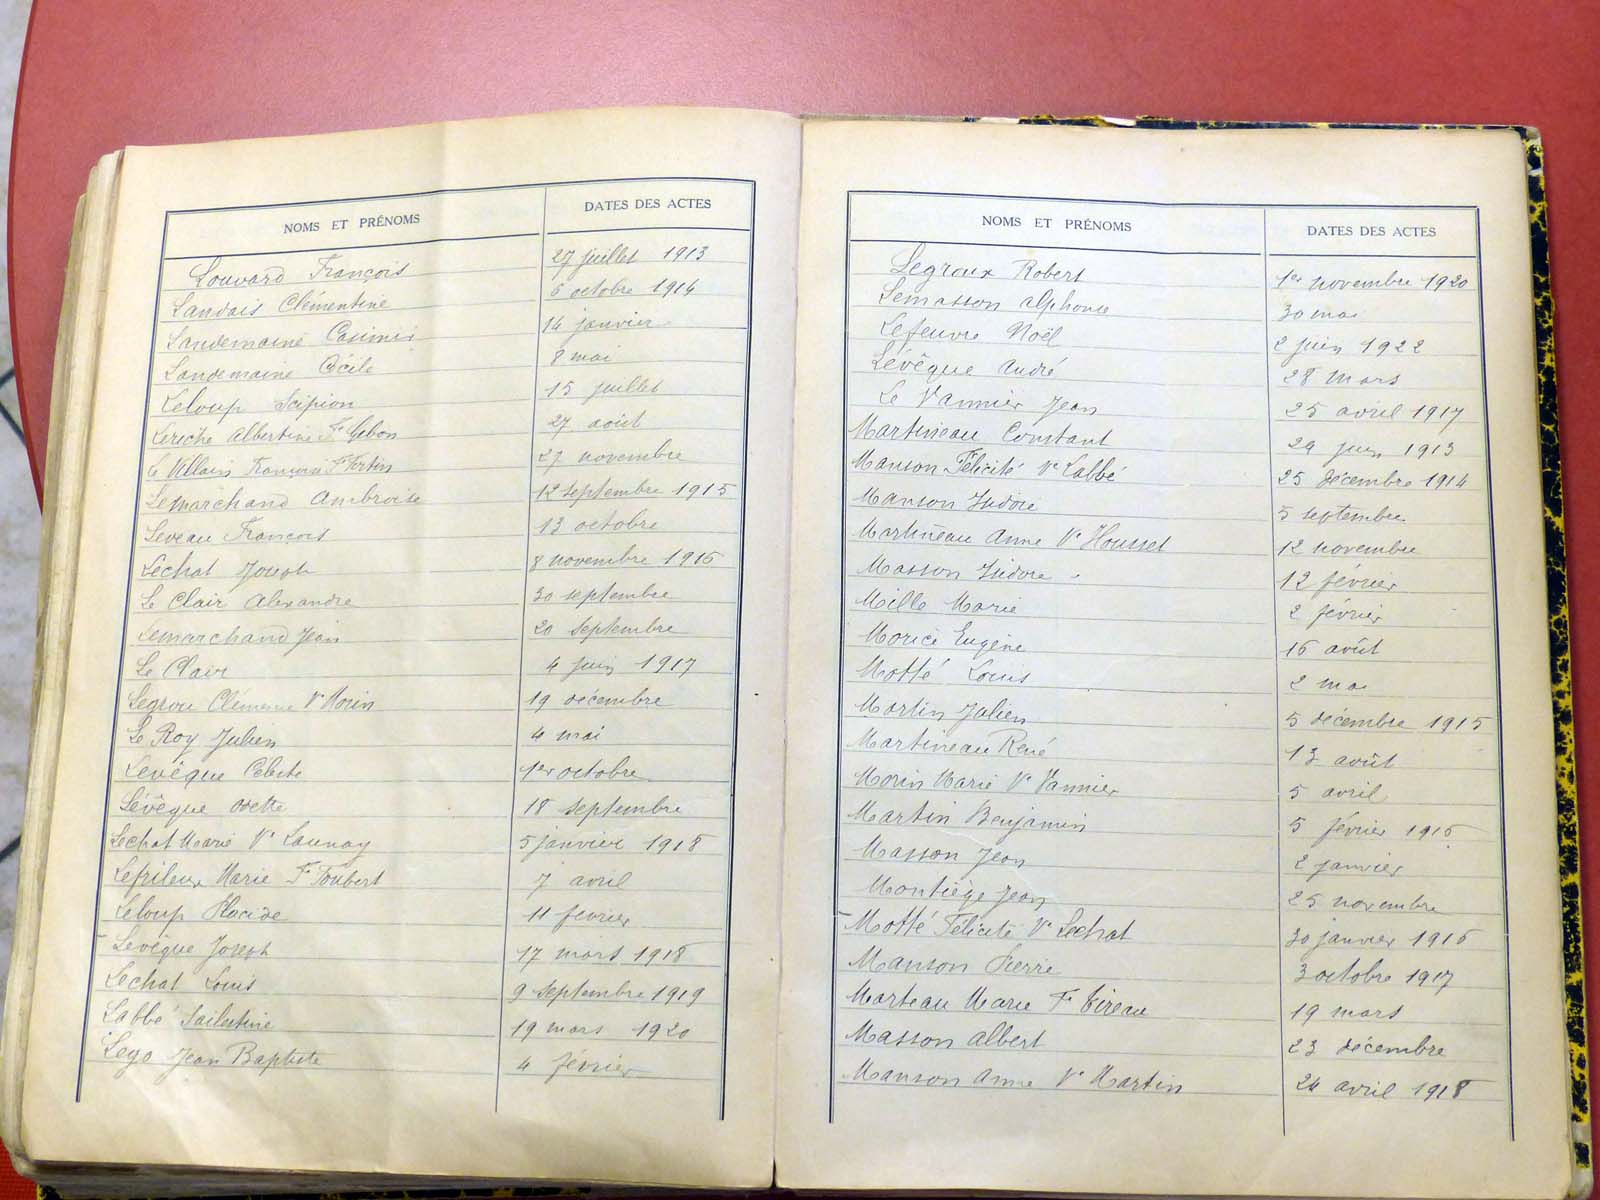 NOMS ET PRÉNOMS DATES DES ACTES
Louvard François 27 juillet 1913
Landais Clémentine 6 octobre 1914
Landemaine Casimir 14 janvier
Landemaine Cécile 8 mai
Leloup Scipion 15 juillet
Leriche Albertine Fe Gebon 27 août
Le Villain Françoise Fe Fortin 27 novembre
Lemarchand Ambroise 12 septembre 1915
Leveau François 13 octobre
Lechat Joseph 8 novembre 1916
Le Clair Alexandre 30 septembre
Lemarchand Jean 20 septembre
Le Clair 4 juin 1917
Legrou Clémence Ve Morin 19 décembre
Le Roy Julien 4 mai
Levêque Celeste 1er octobre
Lévêque Odette 18 septembre
Lechat Marie Ve Launay 5 janvier 1918
Lefrileux Marie Fe Foubert 7 avril
Leloup Placide 11 fevrier
Levêque Joseph 17 mars 1918
Lechat Louis 9 septembre 1919
Labbé 19 mars 1920
Lego Jean Baptiste 4 février
NOMS ET PRÉNOMS DATES DES ACTES
Legroux Robert 1er novembre 1920
Lemasson Alphonse 30 mai
Lefeuvre Noël 2 juin 1922
Lévêque André 28 mars
Le Vannier Jean 25 avril 1917
Martineau Constant 29 juin 1913
Manson Félicité Ve Labbé 25 décembre 1914
Manson Isidore 5 septembre
Martineau Anne Ve Housset 12 novembre
Masson Isidore 12 février
Mille Marie 2 février
Morice Eugène 16 août
Motté Louis 2 mai
Martin Julien 5 décembre 1915
Martineau René 13 août
Morin Marie Ve Vannier 5 avril
Martin Benjamin 5 février 1916
Masson Jean 2 janvier
Montiège Jean 25 novembre
Motté Félicité Ve Lechat 30 janvier 1916
Manson Pierre 3 octobre 1917
Marteau Marie Fe Tireau 19 mars
Masson Albert 23 décembre
Manson Anne Ve Martin 24 avril 1918